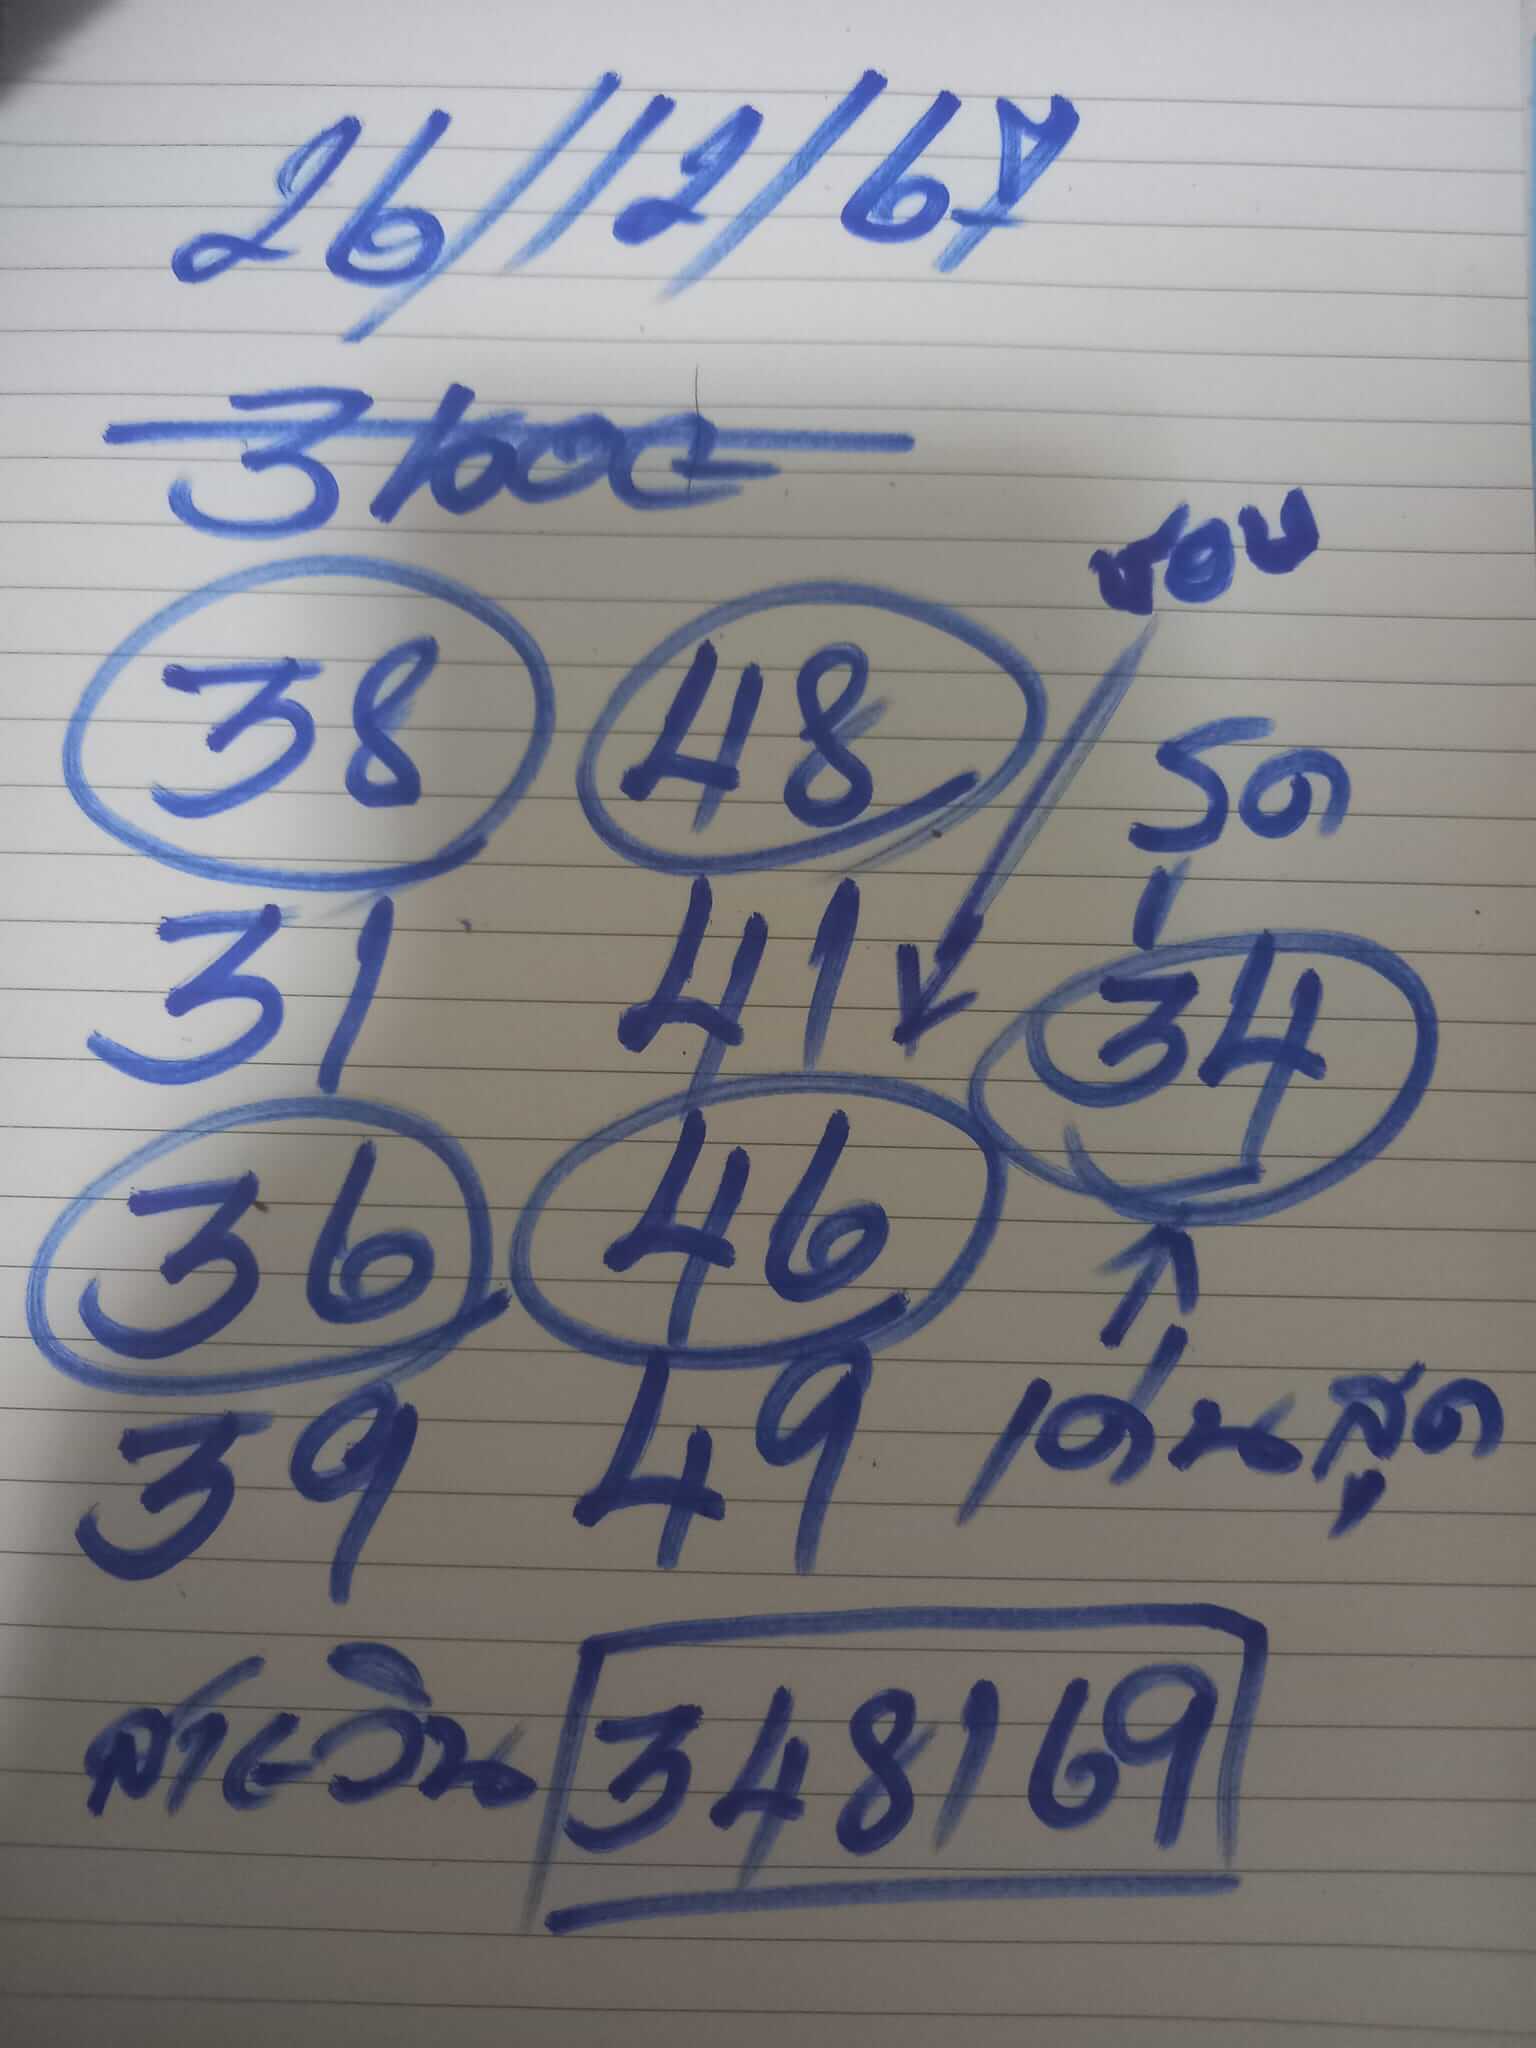 26/12/67
38 48
ชอบ
รูด
31 41
34
36 46
39 49
เด่นสุด
สายวิน 348169